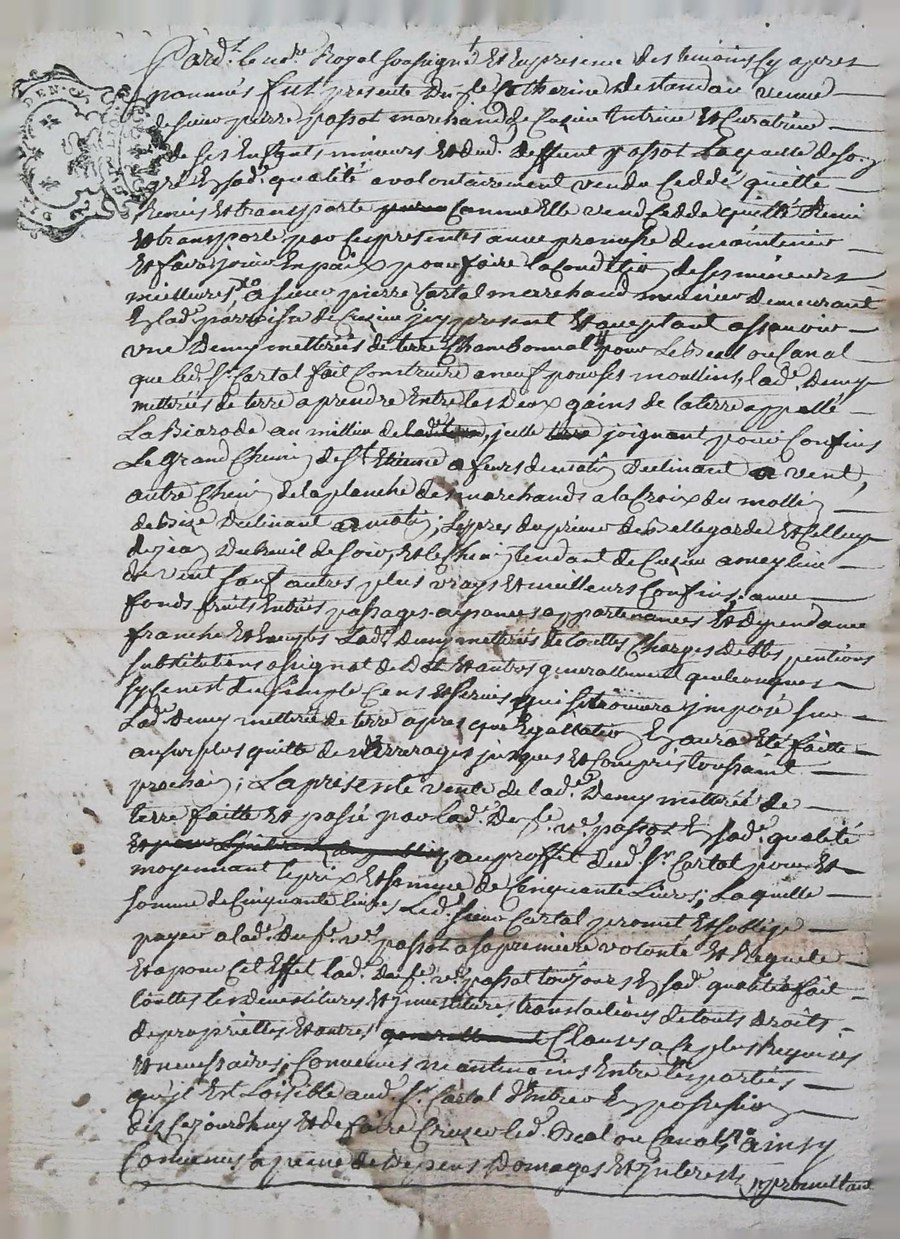 Pard.t le no.re Royal soussigné Et En presence des temoins cy apres
nommés fut presente Du.lle Catherine destandau veuve
de sieur pierre passot marchand de Cusieu tutrice Et Curatrice
de ses Enfants mineurs Et dud. deffunt passot Laquelle de so.
gré Esad. qualité a volontairement vendu Ceddé quitté
Remis Et transporté comme Elle vend Cedde quitte Remi
Et transporte par Ces presentes avec promesse de maintenir
Et faire jouir En paix pour faire la condition de ses mineurs
meilleures, a sieur pierre Cartal marchand meunier demeurant
En lad. parroisse de Cusieu jcy present Et aceptant assavoir
une Demy metterée de terre Chambonnal pour Le Beal ou Canal
que led. Sr. Cartal fait Construire a neuf pour ses moullins, lad. Demy
metterées de terre a prendre Entre les Deux gains de la terre appellé
La Biarode au millieu de, jcelle joignant pour Confins
Le grand Chemi de St. Etienne a feurs de mati declinant a vent,
autre Chemi de la planche des marchands a la Croix du molli
de Bize declinant a mati; Les pres du prieur de Bellegarde Et Celluy
de jea Dubreuil de soir, Et le Chemi tendant de Cusieu a meylieu
de vent sauf autres plus vrays Et meilleurs Confins, avec
fonds fruits Entrées passages aysances appartenances Et dependance
franche Et Exempte Lad. demy metterée de touttes Charges debtes pentions
substitutions assignat de Dot Et autres generallement quelconques
sy Cenest du simple Cens Et servis qui se trouvera jmposé sur
Lad. Demy metterée de terre apres que Egallation En aura Eté faitte
au surplus quitte de arrerages jusques Et Compris toussaint
prochain; La présente vente de lad. Demy metterée de
terre faitte Et passé par lad. De.lle v.e passot Esad. qualité
Et au proffit dud. Sr. Cartal pour Et
moyennant le prix Et somme de Cinquante Livres; Laquelle
somme de Cinquante livres Led. sieur Cartal promet Et soblige
payer a lad. Du.lle v.e passot a sa premiere volonté Et Requete
Et a pour Cet Effet lad. de.lle v.e passot toujours Esad. qualité fait
touttes les demestitures Et jnvestitures translations de touts droits
de proprietes Et autres generallement Clauses a Ce plus Requises
Et necessaires; Convenus neantmoins Entre les parties
qu'jl Est Loisible aud. Sr. Cartal d'Entrer En possession
dès Cejourdhuy Et de faire Creuser led. Beal ou Canal, ainsy
Convenus a peine de Depens Domages Et jnterests, promettant